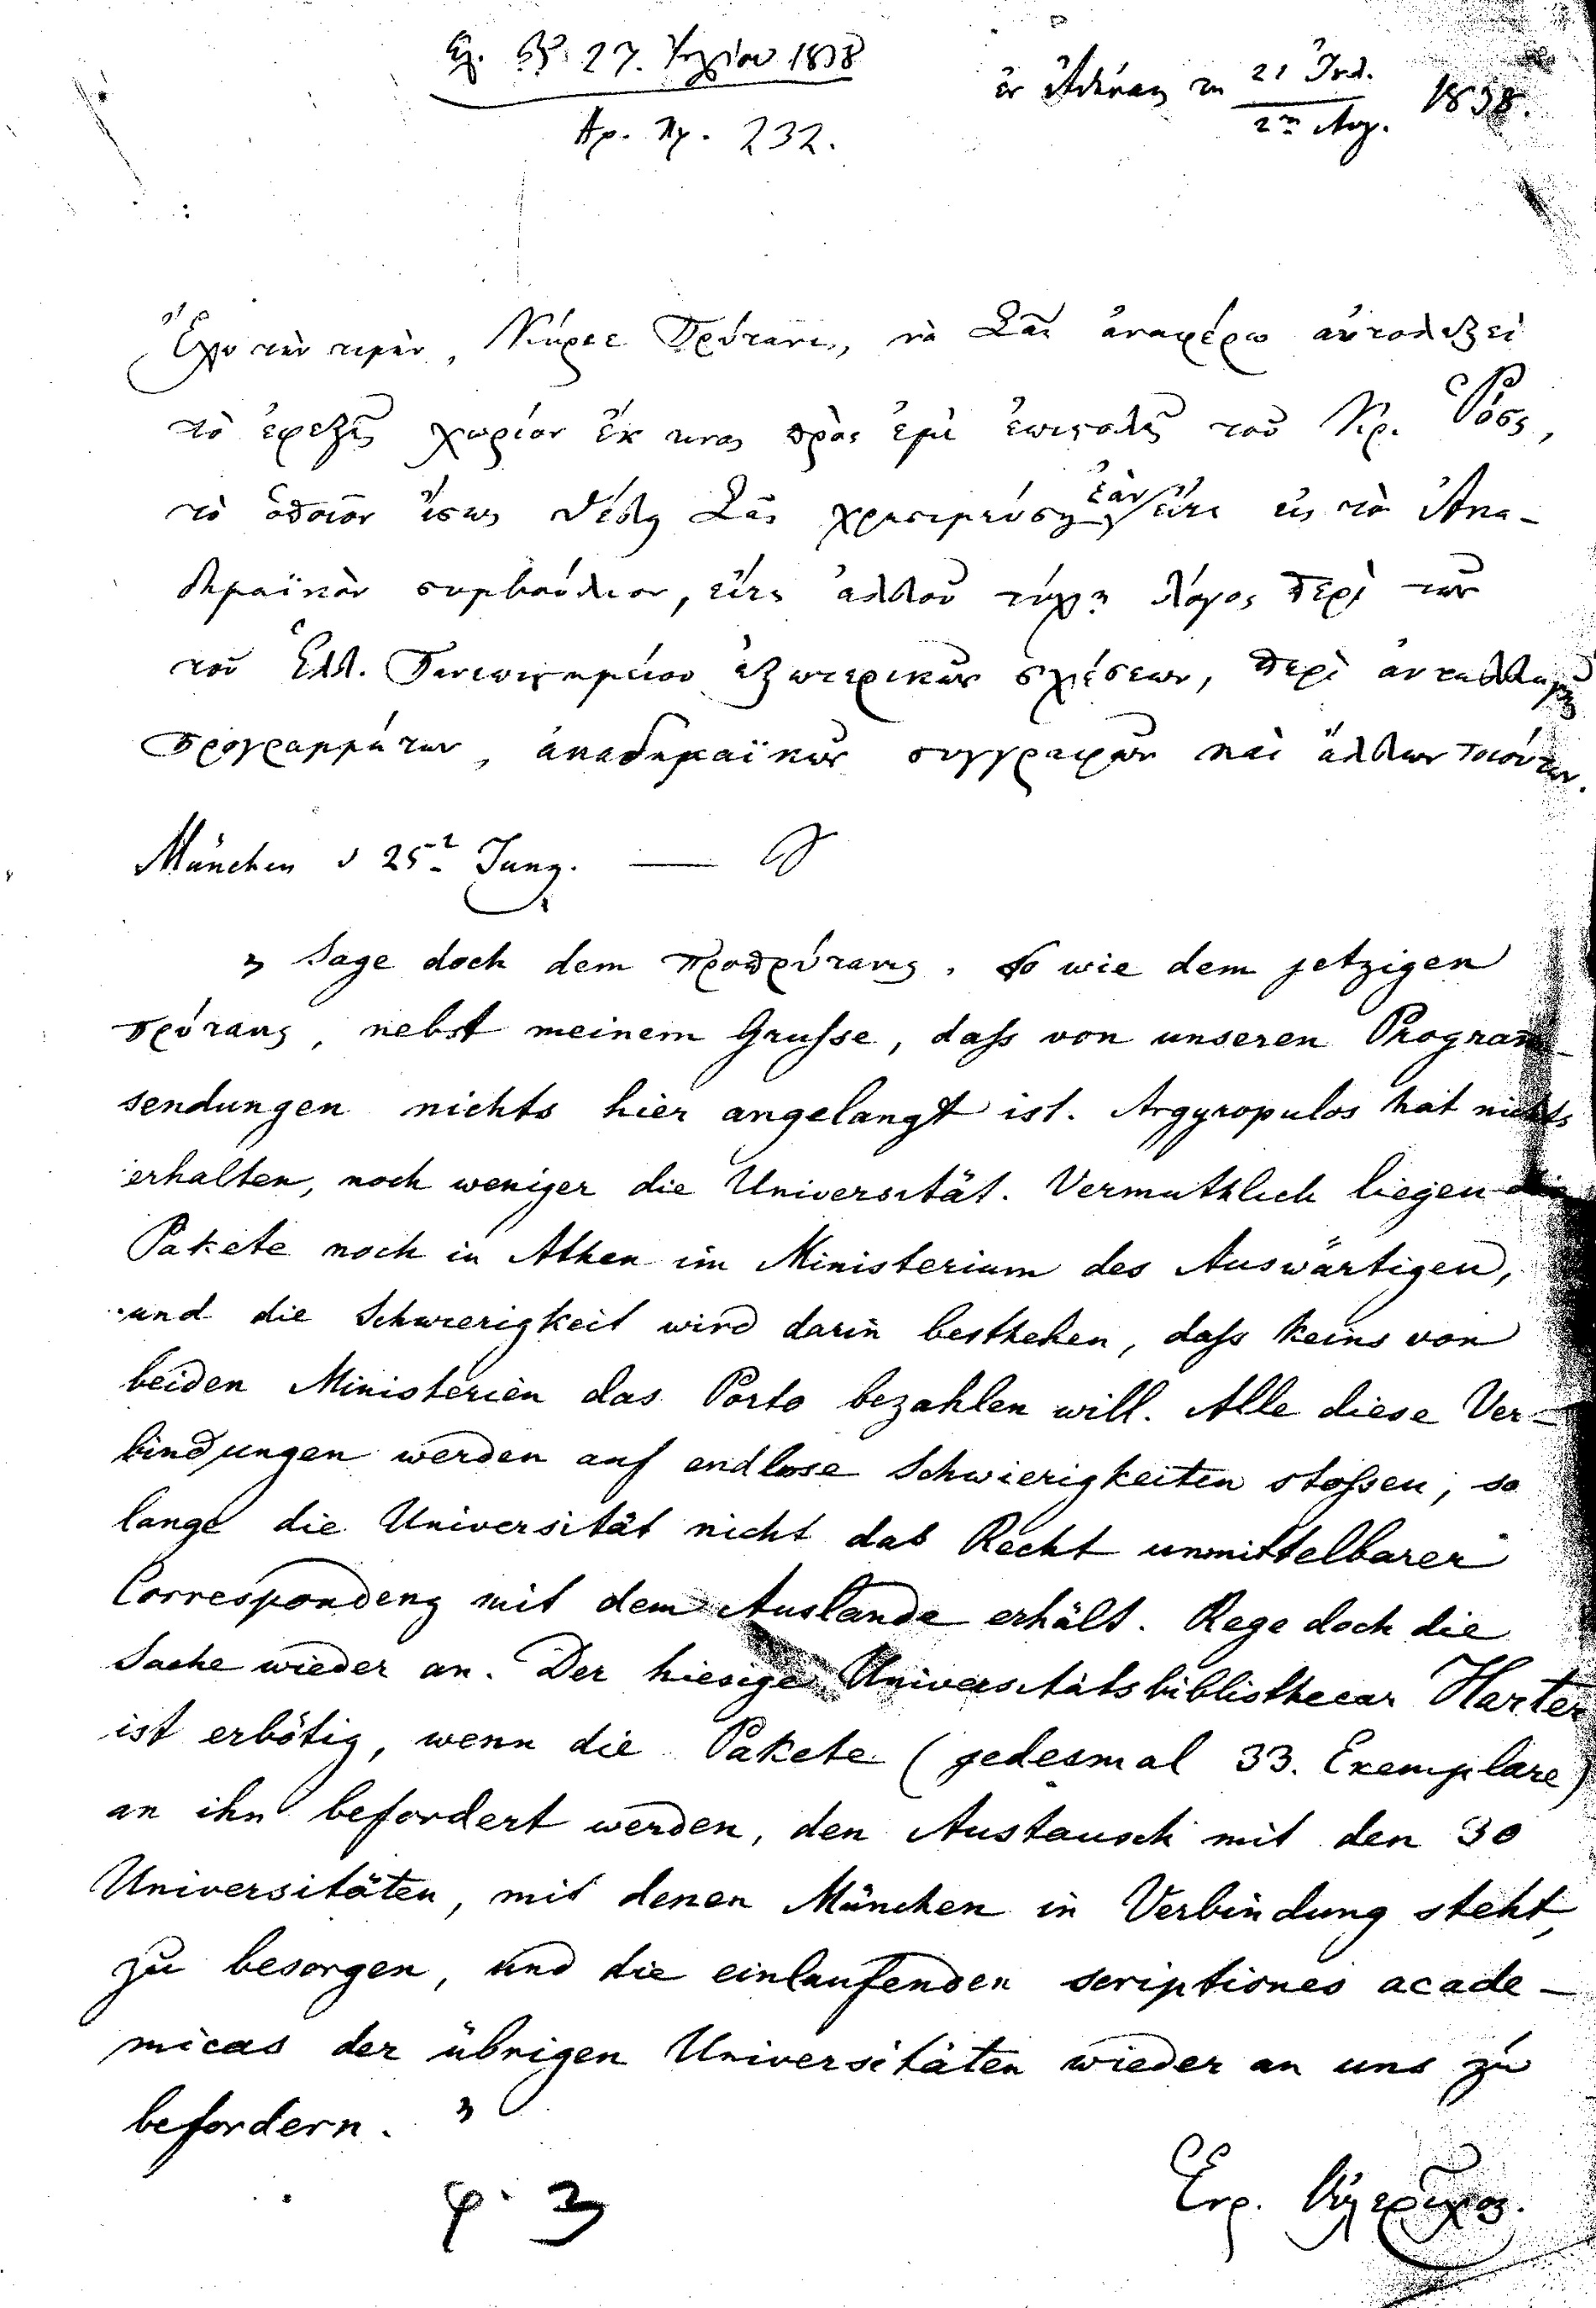 27. Ἰουλίου 1838
Ἀρ. Πρ. 232.
ἐν Ἀθήναις τῇ 21 Ἰουλ. / 2 Αὐγ. 1838.
Ἔχω τὴν τιμὴν, Κύριε Πρύτανι, νὰ Σᾶς ἀναφέρω αὐτολεξεὶ
τὸ ἐφεξῆς χωρίον ἔκ τινος πρὸς ἐμὲ ἐπιστολῆς τοῦ Κυρ. Ῥόσς,
τὸ ὁποῖον ἴσως θέλῃ Σᾶς χρησιμεύσῃ ἐὰν εἴτε εἰς τὸ Ἀκα-
δημαϊκὸν συμβούλιον, εἴτε ἀλλοῦ τύχῃ λόγος περὶ τῶν
τοῦ Ἑλλ. Πανεπιστημείου ἐξωτερικῶν σχέσεων, περὶ ἀνταλλαγῆς
προγραμμάτων, ἀκαδημαϊκῶν συγγραφῶν καὶ ἄλλων τοιούτων.
München d 25 Juny. —
„ Sage doch dem προπρύτανις, so wie dem jetzigen
πρύτανις, nebst meinem Gruſse, daſs von unseren Program-
sendungen nichts hier angelangt ist. Argyropulos hat nichts
erhalten, noch weniger die Universität. Vermuthlich liegen die
Pakete noch in Athen im Ministerium des Auswärtigen,
und die Schwierigkeit wird darin besthehen, daſs keins von
beiden Ministerien das Porto bezahlen will. Alle diese Ver-
bindungen werden auf endlose Schwierigkeiten stoſsen, so
lange die Universität nicht das Recht unmittelbarer
Correspondenz mit dem Auslande erhält. Rege doch die
Sache wieder an. Der hiesige Universitätsbibliothecar Harter
ist erbötig, wenn die Pakete (jedesmal 33. Exemplare)
an ihn befordert werden, den Austausch mit den 30
Universitäten, mit denen München in Verbindung steht,
zu besorgen, und die einlaufenden scriptiones acade-
micas der übrigen Universitäten wieder an uns zu
befordern. "
φ. 3
Ἑρ.